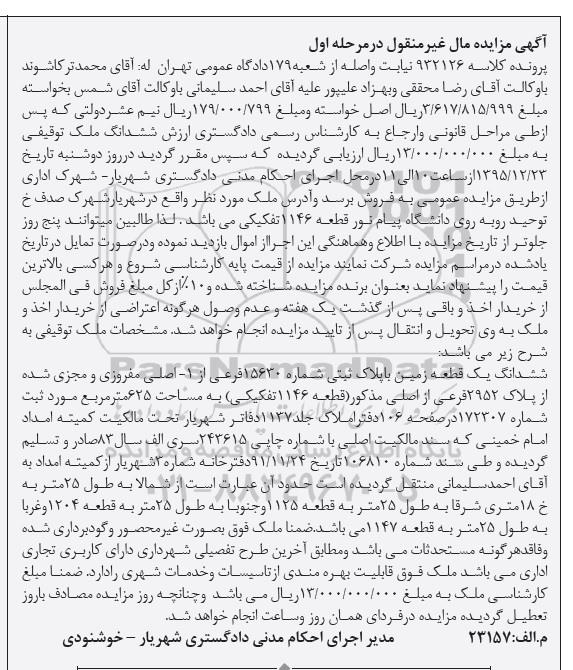 آگهی مزایده مال غیرمنقول درمرحله اول
پرونده کلاسه ۹۳۲۱۲۶ نیابت واصله از شعبه۱۷۹دادگاه عمومی تهران له: آقای محمدترکاشوند
باوکالت آقای رضا محققی وبهزاد علیپور علیه آقای احمد سلیمانی باوکالت آقای شمس بخواسته
مبلغ ۳/۶۱۷/۸۱۵/۹۹۹ریال اصل خواسته ومبلغ ۱۷۹/۰۰۰/۷۹۹ریال نیم عشردولتی که پس
ازطی مراحل قانونی وارجاع به کارشناس رسمی دادگستری ارزش ششدانگ ملک توقیفی
به مبلغ ۱۳/۰۰۰/۰۰۰/۰۰۰ریال ارزیابی گردیده که سپس مقرر گردید درروز دوشنبه تاریخ
۱۳۹۵/۱۲/۲۳ازساعت۱۰الی۱۱درمحل اجرای احکام مدنی دادگستری شهریار- شهرک اداری
ازطریق مزایده عمومی به فروش برسد وآدرس ملک مورد نظر واقع درشهریارشهرک صدف خ
توحید روبه روی دانشگاه پیام نور قطعه ۱۱۴۶تفکیکی می باشد . لذا طالبین میتوانند پنج روز
جلوتر از تاریخ مزایده با اطلاع وهماهنگی این اجرااز اموال بازدید نموده ودرصورت تمایل درتاریخ
یادشده درمراسم مزایده شرکت نمایند مزایده از قیمت پایه کارشناسی شروع و هرکسی بالاترین
قیمت را پیشنهاد نماید بعنوان برنده مزایده شناخته شده و۱۰٪ازکل مبلغ فروش فی المجلس
از خریدار اخذ و باقی پس از گذشت یک هفته و عدم وصول هرگونه اعتراضی از خریدار اخذ و
ملک به وی تحویل و انتقال پس از تایید مزایده انجام خواهد شد. مشخصات ملک توقیفی به
شرح زیر می باشد:
ششدانگ یک قطعه زمین باپلاک ثبتی شماره ۱۵۶۳۰فرعی از ۱- اصلی مفروزی و مجزی شده
از پلاک ۲۹۵۲فرعی از اصلی مذکور(قطعه ۱۱۴۶تفکیکی) به مساحت ۶۲۵مترمربع مورد ثبت
شماره ۱۷۲۳۰۷درصفحه ۱۰۶دفتر املاک جلد۱۱۳۷دفاتر شهریار تحت مالکیت کمیته امداد
امام خمینی که سند مالکیت اصلی با شماره چاپی ۲۴۳۶۱۵سری الف سال۸۳صادر و تسلیم
گردیده و طی سند شماره ۱۰۶۸۱۰تاریخ ۹۱/۱۱/۲۴دفترخانه شماره۳شهریار ازکمیته امداد به
آقای احمدسلیمانی منتقل گردیده است حدود آن عبارت است از شمالا به طول ۲۵متر به
خ ۱۸متری شرقا به طول ۲۵متر به قطعه ۱۱۲۵وجنوبا به طول ۲۵متر به قطعه ۱۲۰۴وغربا
به طول ۲۵متر به قطعه ۱۱۴۷می باشد.ضمنا ملک فوق بصورت غیرمحصور وگودبرداری شده
وفاقدهرگونه مستحدثات می باشد ومطابق آخرین طرح تفصیلی شهرداری دارای کاربری تجاری
اداری می باشد ملک فوق قابلیت بهره مندی ازتاسیسات وخدمات شهری رادارد. ضمنا مبلغ
کارشناسی ملک به مبلغ ۱۳/۰۰۰/۰۰۰/۰۰۰ریال می باشد وچنانچه روز مزایده مصادف باروز
تعطیل گردیده مزایده درفردای همان روز وساعت انجام خواهد شد.
م.الف:۲۳۱۵۷ مدیر اجرای احکام مدنی دادگستری شهریار – خوشنودی
ParsNamadData